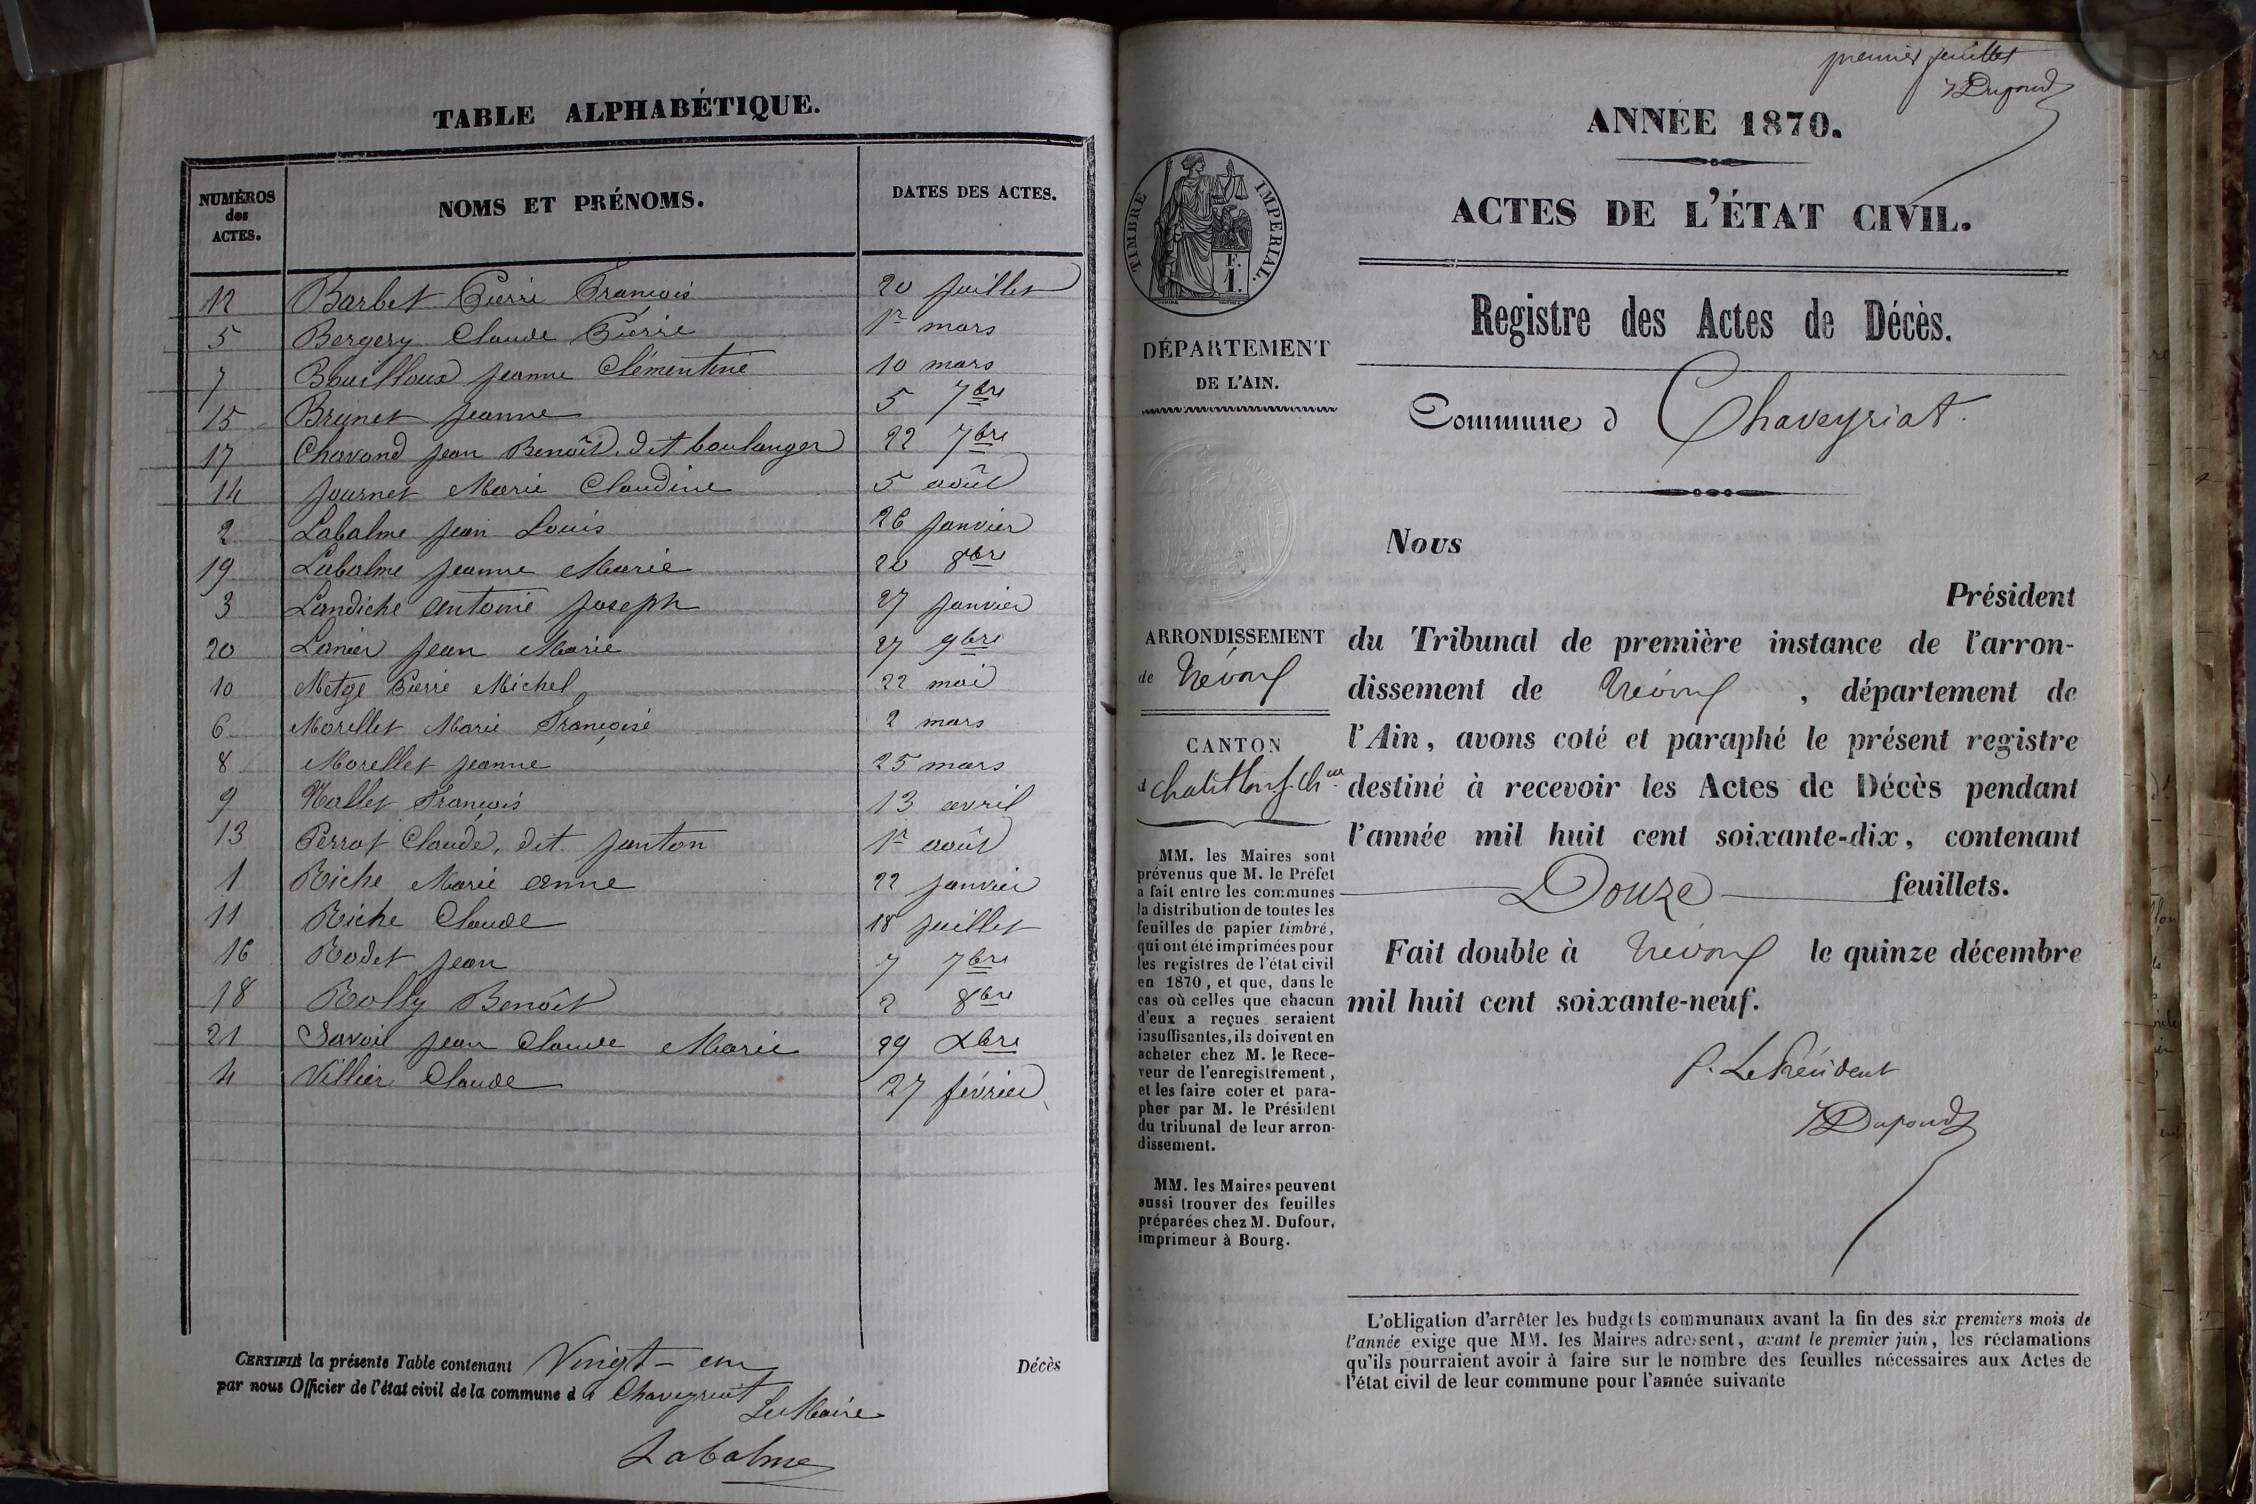 TABLE ALPHABÉTIQUE.
NUMÉROS des ACTES. NOMS ET PRÉNOMS. DATES DES ACTES.
12 Barbet Pierre François 20 juillet
5 Bergery Claude Pierre 1er mars
7 Bouilloux Jeanne Clémentine 10 mars
15 Brunet Jeanne 5 7bre
17 Chavand Jean Benoît, dit boulanger 22 7bre
14 Journet Marie Claudine 5 août
2 Labalme Jean Louis 26 Janvier
19 Labalme Jeanne Marie 20 8bre
3 Landiche Antoine Joseph 27 Janvier
20 Lanier Jean Marie 27 9bre
10 Metge Pierre Michel 22 mai
6 Morellet Marie Françoise 2 mars
8 Morellet Jeanne 25 mars
9 Nallet François 13 avril
13 Perrat Claude, dit Janton 1er août
1 Riche Marie Anne 22 Janvier
11 Riche Claude 18 juillet
16 Rodet Jean 7 7bre
18 Rolly Benoît 2 8bre
21 Savoie Jean Claude Marie 29 Xbre
4 Villier Claude 27 février
CERTIFIÉ la présente Table contenant Vingt-un Décès
par nous Officier de l'état civil de la commune de Chaveyriat
Le Maire
Labalme
premier feuillet
Dupond
ANNÉE 1870.
ACTES DE L'ÉTAT CIVIL.
TIMBRE IMPÉRIAL.
F. 1.
Registre des Actes de Décès.
DÉPARTEMENT
DE L'AIN.
Commune d Chaveyriat.
Nous
Président
ARRONDISSEMENT
de Trévoux
du Tribunal de première instance de l'arron-
dissement de Trévoux, département de
l'Ain, avons coté et paraphé le présent registre
destiné à recevoir les Actes de Décès pendant
l'année mil huit cent soixante-dix, contenant
Douze feuillets.
Fait double à Trévoux le quinze décembre
mil huit cent soixante-neuf.
P. Le Président
Dupond
CANTON
d Chatillon s. Ch.
MM. les Maires sont
prévenus que M. le Préfet
a fait entre les communes
la distribution de toutes les
feuilles de papier timbré,
qui ont été imprimées pour
les registres de l'état civil
en 1870, et que, dans le
cas où celles que chacun
d'eux a reçues seraient
insuffisantes, ils doivent en
acheter chez M. le Rece-
veur de l'enregistrement,
et les faire coter et para-
pher par M. le Président
du tribunal de leur arron-
dissement.
MM. les Maires peuvent
aussi trouver des feuilles
préparées chez M. Dufour,
imprimeur à Bourg.
L'obligation d'arrêter les budgets communaux avant la fin des six premiers mois de
l'année exige que MM. les Maires adressent, avant le premier juin, les réclamations
qu'ils pourraient avoir à faire sur le nombre des feuilles nécessaires aux Actes de
l'état civil de leur commune pour l'année suivante